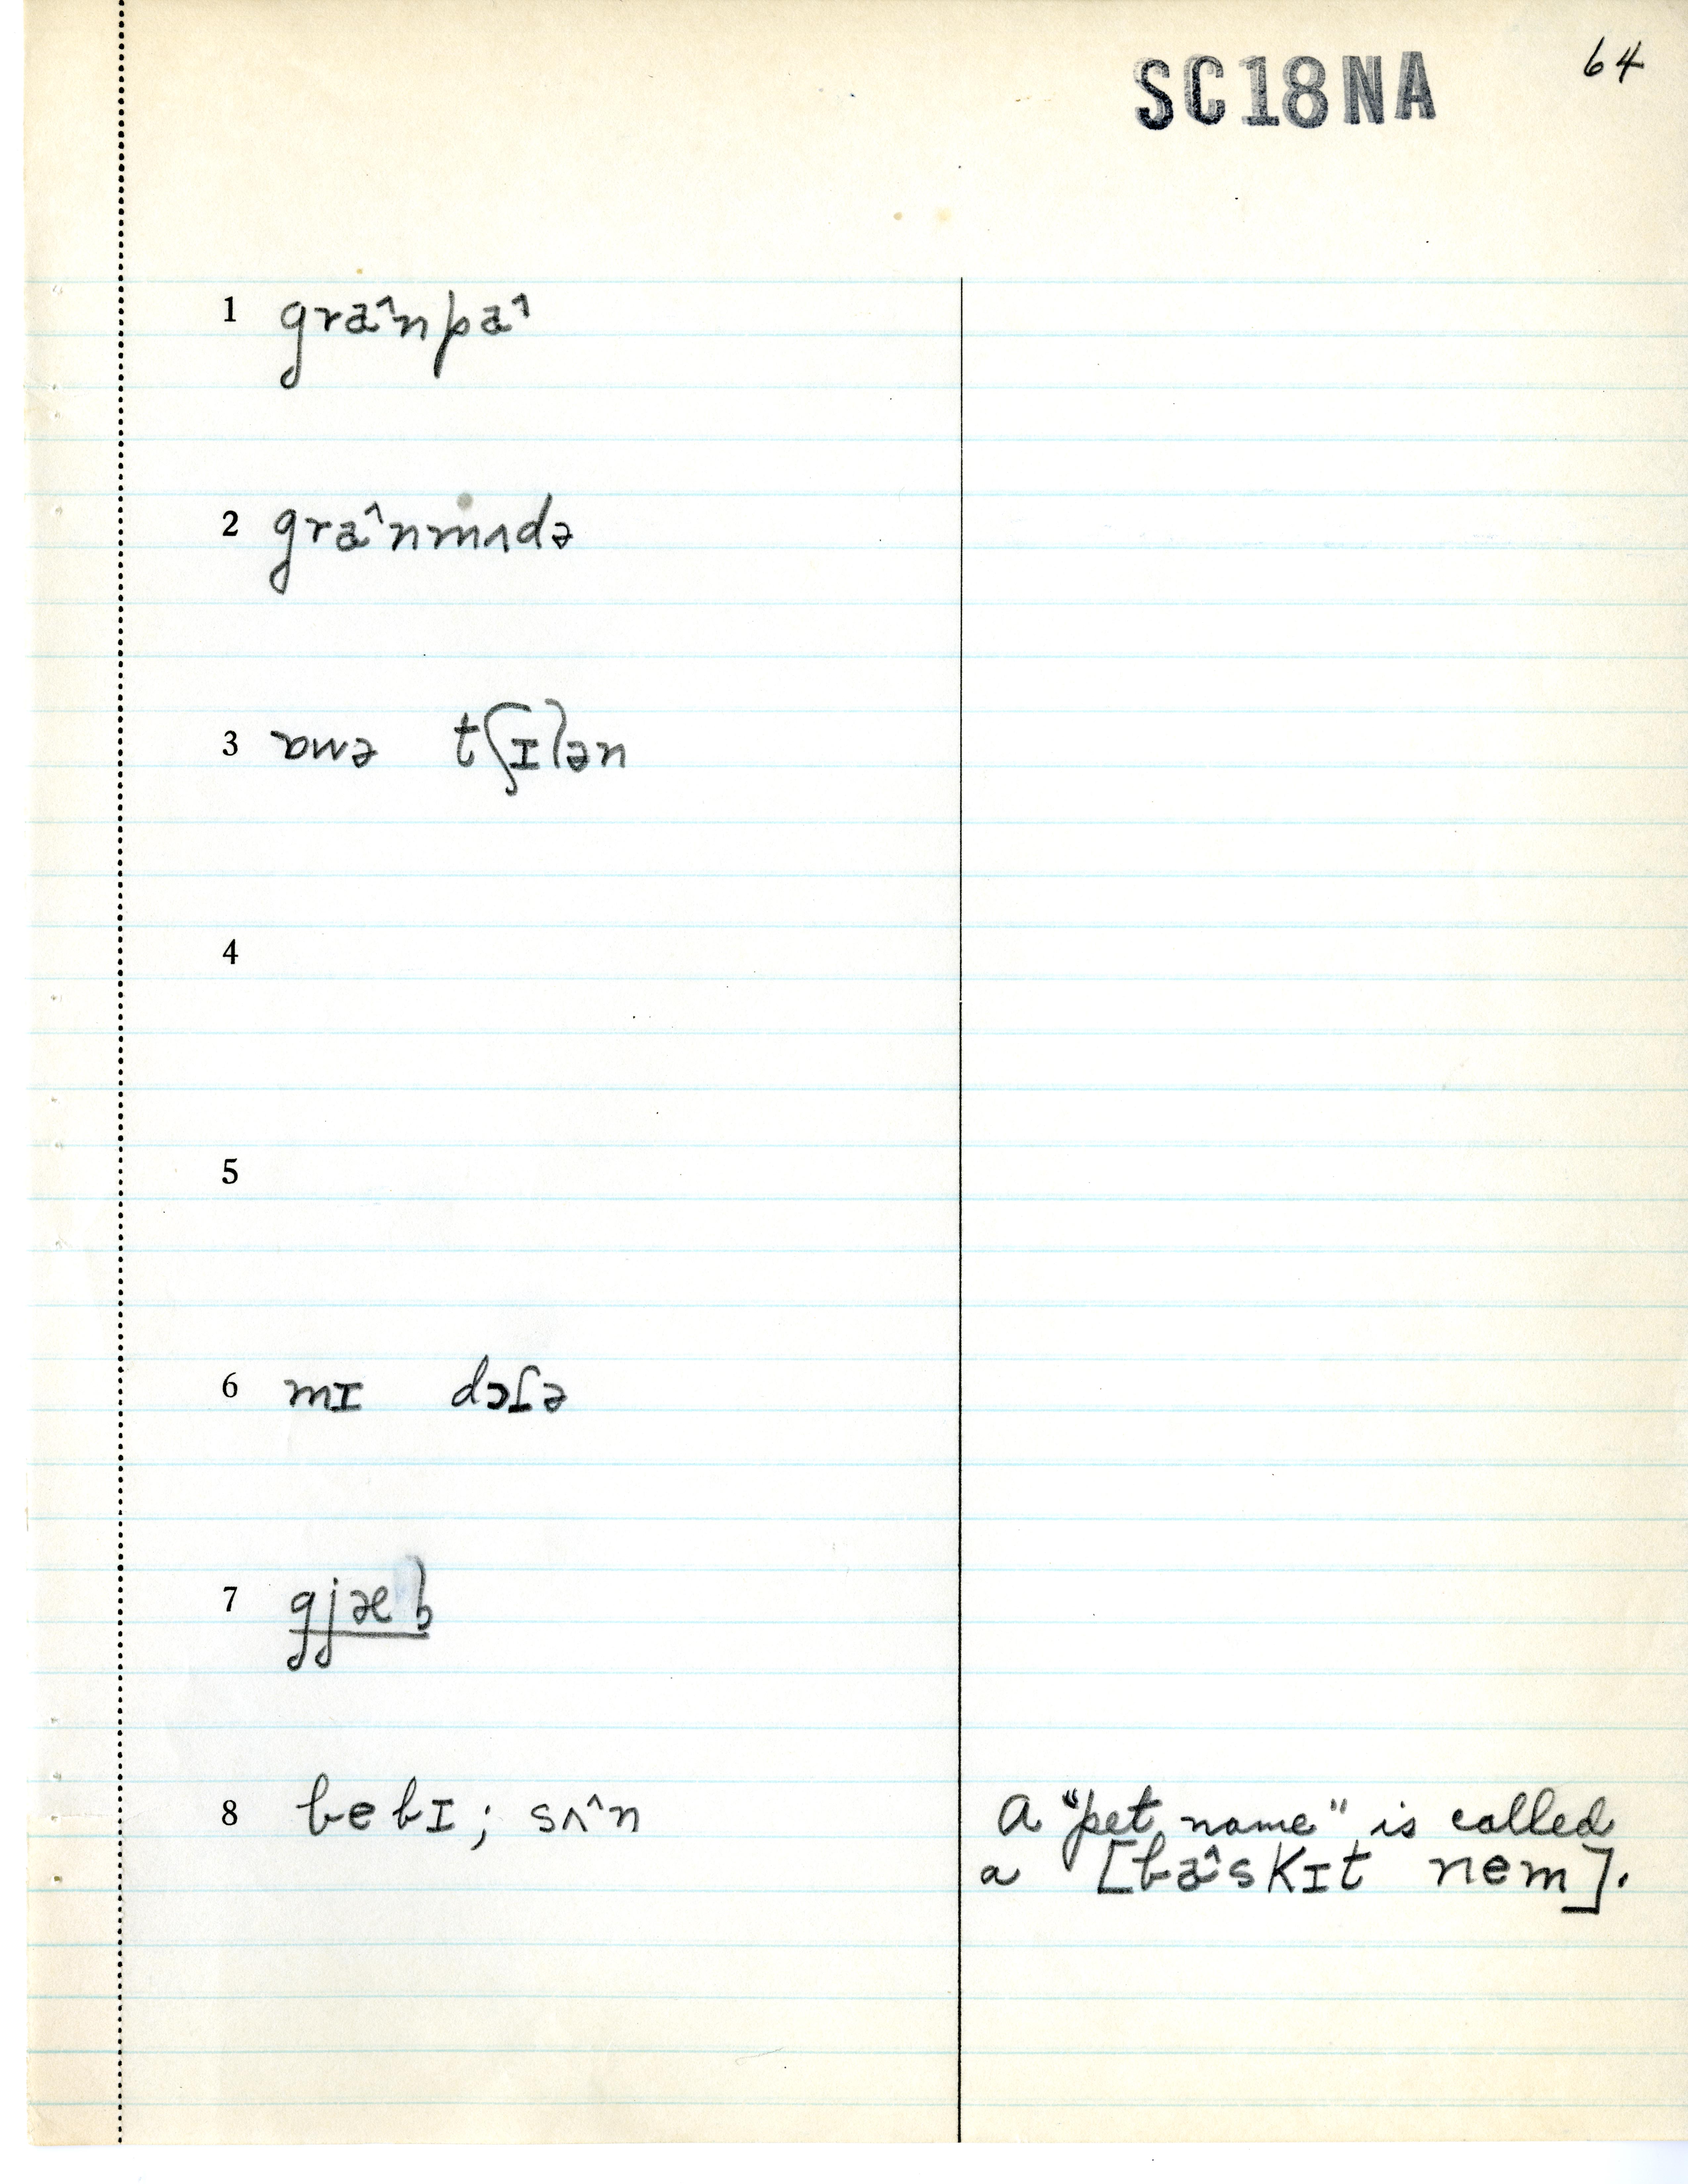 SC18NA 64
1 gra˄npa˄
2 gra˄nmʌdə
3 ɒwə tʃɪlən
4
5
6 mɪ dɔʃə
7 gjæb
8 bebɪ; sʌ˄n
A "pet name" is called
a [ba˄skɪt nem].